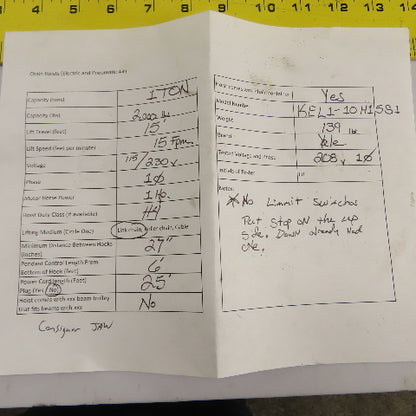 4 5 6 7 8 9 10 11 12 13 14
Chain Hoists (Electric and Pneumatic Air)
Capacity (tons) 1 TON
Capacity (lbs) 2000 lb
Lift Travel (feet) 15
Lift Speed (feet per minute) 15 fpm
Voltage 115/230 v
Phase 1Ø
Motor Horse Power 1 Hp
Hoist Duty Class (if available) H4
Lifting Medium (Circle One) Link chain, roller chain, Cable
Minimum Distance Between Hooks
(inches) 27"
Pendant Control Length From
Bottom of Hook (feet) 6'
Power Cord length (Feet) 25'
Plug (Yes / No)
Hoist comes with beam trolley
that fits beams No
Consignor JAW
Yes
Model Number KEL1-10H15S1
Weight 139 lbs
Brand Yale
Tested Voltage and Phase 208 v 1Ø
Initials of Tester
Notes:
* No Limmit Switches
Put Stop on the up
Side. Down already had
one.